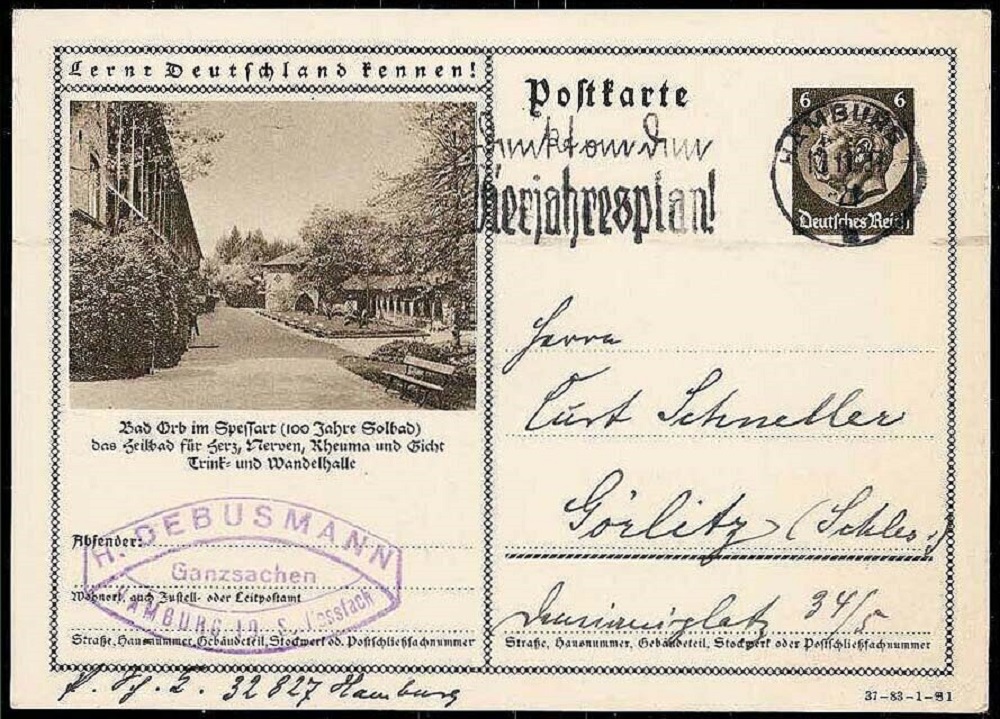 Lernt Deutschland kennen!
Postkarte
6 6
HAMBURG
Deutsches Reich
Denkt an den
Vierjahresplan!
Bad Orb im Spessart (100 Jahre Solbad)
das Heilbad für Herz, Nerven, Rheuma und Gicht
Trink- und Wandelhalle
Herrn
Curt Schneller
Görlitz (Schles.)
34/5
Straße, Hausnummer, Gebäudeteil, Stockwerk oder Postschließfachnummer
Absender:
H. GEBUSMANN
Ganzsachen
HAMBURG
Wohnort, auch Zustell- oder Leitpostamt
Straße, Hausnummer, Gebäudeteil, Stockwerk od. Postschließfachnummer
32 827 Hamburg
37-83-1-B1